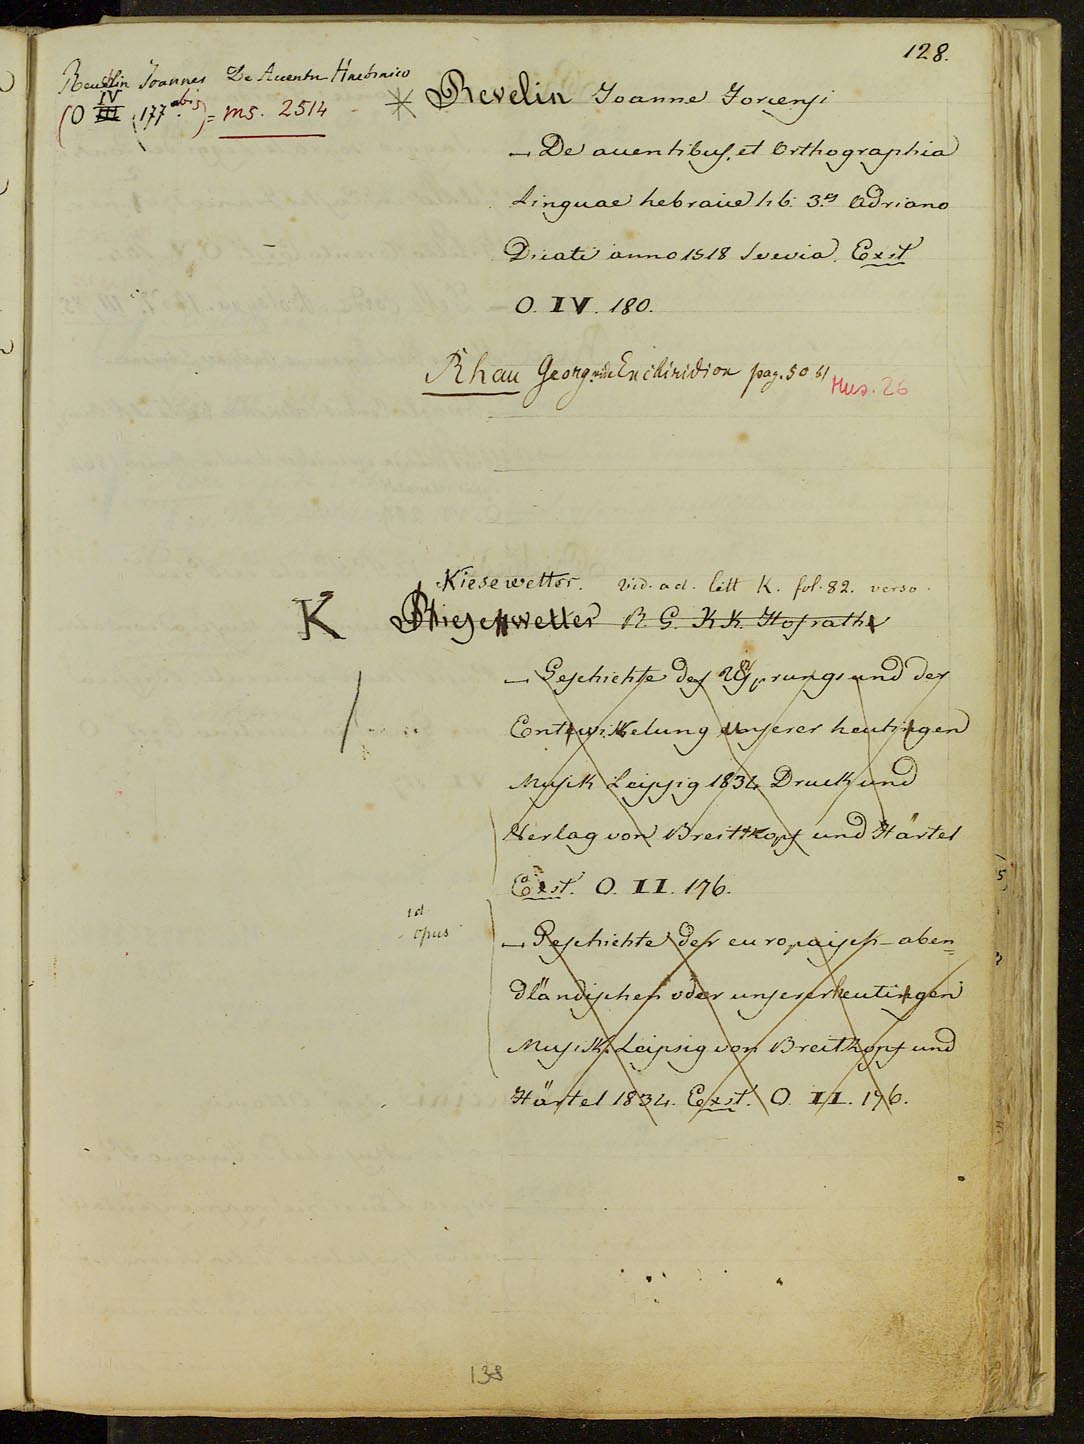 128.
Reuchlin Joannes De Accentu Hæbraico
(O IV III 177 abis) = ms. 2514
* Revelin Joanne Forcensi
— De accentibus, et Orthographia
Linguae hebraice lib. 3.es Adriano
Dicati anno 1518 Svevia. Exst
O. IV. 180.
Rhau Georg. vide Enchiridion pag. 50 61
Mus. 26
Kiesewetter. vid. ad. litt K. fol. 82. verso.
K Rhiesewetter R. G. K K. Hofrath
— Geschichte des Ursprungs und der
Entwikelung unserer heutingen
Musik Leipzig 1834 Druck und
Verlag von Breitkopf und Härtel
Exst. O. II. 176.
id
opus
— Geschichte der europaisch-aben=
dländischen oder unserer heutingen
Musik. Leipsig von Breitkopf und
Härtel 1834. Exst. O. II. 176.
138